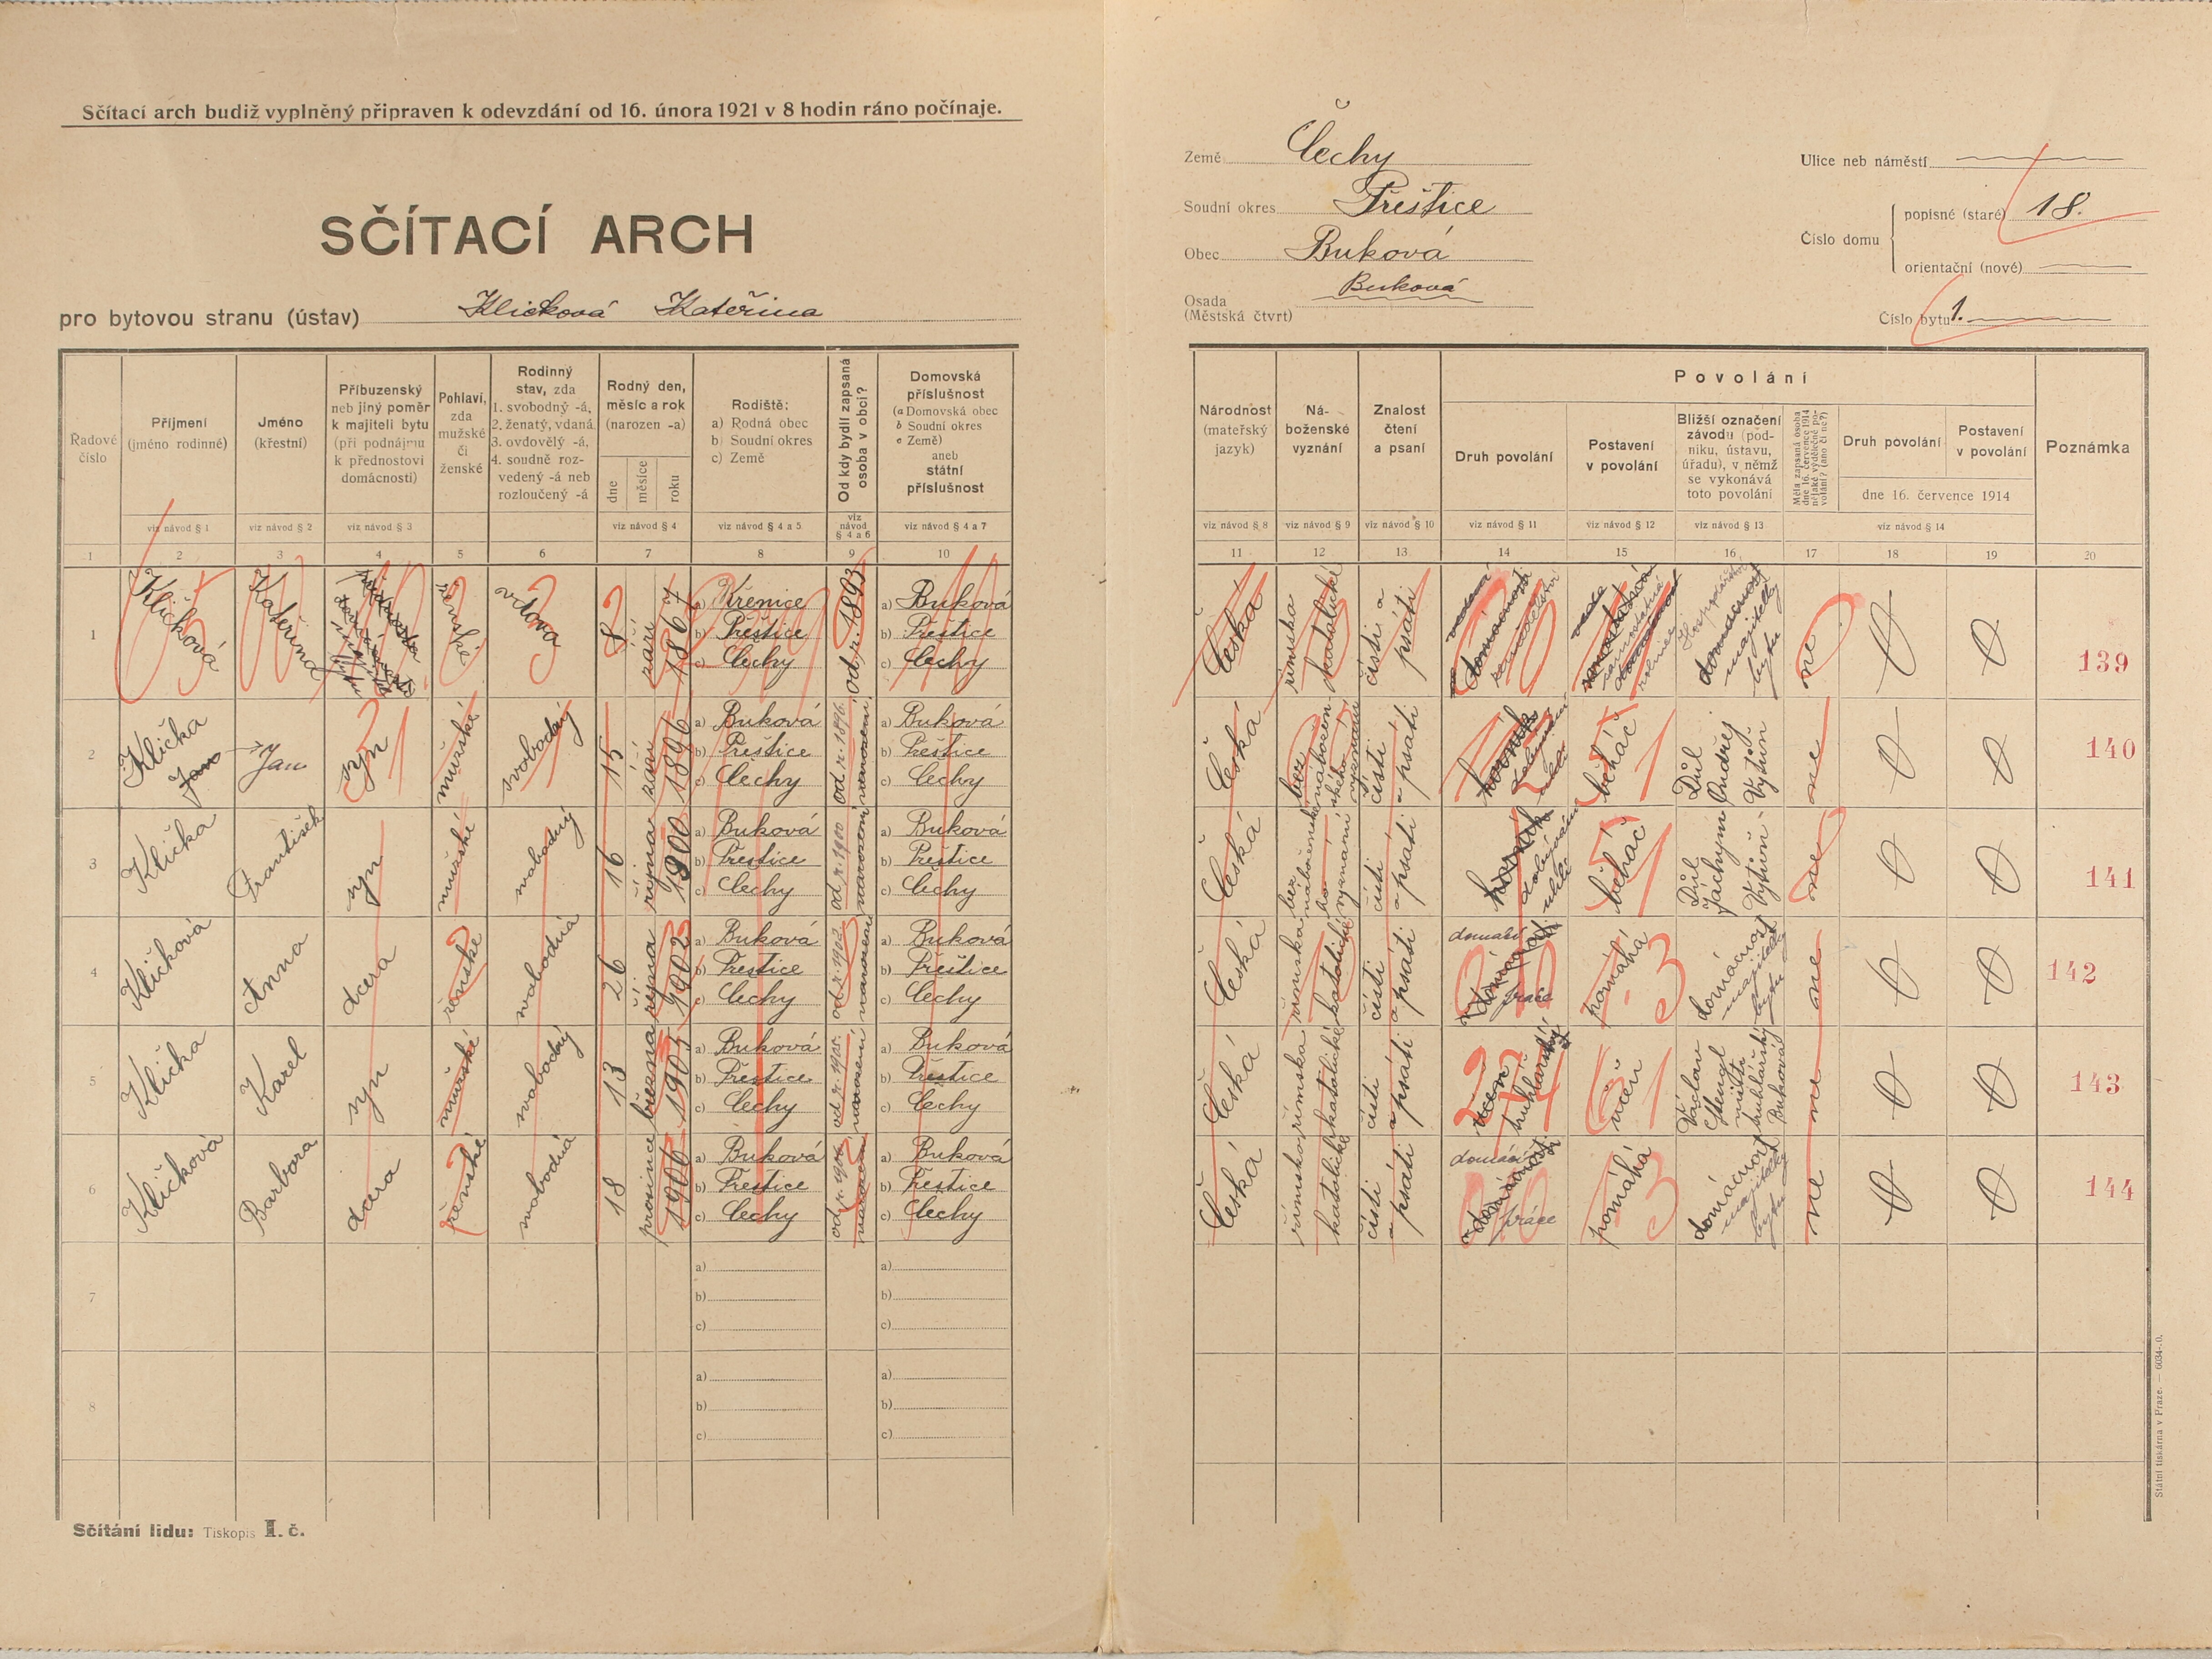 Sčítací arch budiž vyplněný připraven k odevzdání od 16. února 1921 v 8 hodin ráno počínaje.
SČÍTACÍ ARCH
pro bytovou stranu (ústav) Klicková Kateřina
Země Čechy
Soudní okres Přeštice
Obec Buková
Osada Buková
(Městská čtvrť)
Ulice neb náměstí
Číslo domu
popisné (staré) 18.
orientační (nové)
Číslo bytu 1.
Řadové číslo
Příjmení (jméno rodinné)
Jméno (křestní)
Příbuzenský neb jiný poměr k majiteli bytu (při podnájmu k přednostovi domácnosti)
Pohlaví, zda mužské či ženské
Rodinný stav, zda 1. svobodný -á, 2. ženatý, vdaná 3. ovdovělý -á, 4. soudně rozvedený -á neb rozloučený -á
Rodný den, měsíc a rok (narozen -a)
dne měsíce roku
Rodiště: a) Rodná obec b) Soudní okres c) Země
Od kdy bydlí zapsaná osoba v obci?
Domovská příslušnost (a Domovská obec b Soudní okres c Země) aneb státní příslušnost
Národnost (mateřský jazyk)
Náboženské vyznání
Znalost čtení a psaní
Povolání
Druh povolání
Postavení v povolání
Bližší označení závodu (podniku, ústavu, úřadu), v němž se vykonává toto povolání
Měla zapsaná osoba dne 16. července 1914 nějaké výdělečné povolání? (ano či ne?)
Druh povolání
Postavení v povolání
dne 16. července 1914
Poznámka
viz návod § 1 viz návod § 2 viz návod § 3 viz návod § 4 viz návod § 4 a 5 viz návod § 4 a 6 viz návod § 4 a 7 viz návod § 8 viz návod § 9 viz návod § 10 viz návod § 11 viz návod § 12 viz návod § 13 viz návod § 14
1 2 3 4 5 6 7 8 9 10 11 12 13 14 15 16 17 18 19 20
1 Kličková Kateřina ženské vdova 8 září 1867 a) Křenice b) Přeštice c) Čechy od r. 1893 a) Buková b) Přeštice c) Čechy Česká římsko katolické čísti a psáti domácnost majitelky bytu ne 0 0 139
2 Klička Jan Jan syn mužské svobodný 15 září 1896 a) Buková b) Přeštice c) Čechy od r. 1896. narození a) Buková b) Přeštice c) Čechy Česká bez náboženského vyznání čísti a psáti horník běhač Důl Ondřej Vytun ne 0 0 140
3 Klička František syn mužské svobodný 16 října 1900 a) Buková b) Přeštice c) Čechy od r. 1900 narození a) Buková b) Přeštice c) Čechy Česká bez náboženského vyznání čísti a psáti horník běhač Důl Jáchym ne 0 0 141
4 Kličková Anna dcera ženské svobodná 26 října 1902 a) Buková b) Přeštice c) Čechy od r. 1902. narození a) Buková b) Přeštice c) Čechy Česká římsko katolické čísti a psáti domácí práce pomáhá domácnost majitelky bytu ne 0 0 142
5 Klička Karel syn mužské svobodný 13 března 1905 a) Buková b) Přeštice c) Čechy od r. 1905. narození a) Buková b) Přeštice c) Čechy Česká římsko katolické čísti a psáti učen truhlářský učeň Václav mistr truhlářský Buková ne 0 0 143
6 Kličková Barbora dcera ženské svobodná 18 prosince 1906 a) Buková b) Přeštice c) Čechy od r. 1906 narození a) Buková b) Přeštice c) Čechy Česká římsko katolické čísti a psáti domácí práce pomáhá domácnost majitelky bytu ne 0 0 144
7 a) b) c) a) b) c)
8 a) b) c) a) b) c)
Sčítání lidu: Tiskopis I. č.
Státní tiskárna v Praze. — 6034-0.